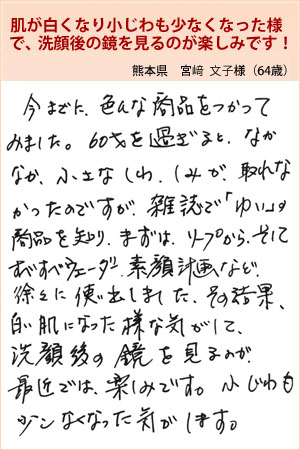 肌が白くなり小じわも少なくなった様
で、洗顔後の鏡を見るのが楽しみです！
熊本県　宮﨑 文子様（64歳）
今までに、色んな商品をつかって
みました。60才を過ぎると、なか
なか、小さなしわ、しみが、取れな
かったのですが、雑誌で「ゆいの」
商品を知り、まずは、ソープから、そして
すべすべウォーター、素顔計画など、
徐々に使い出しました、その結果、
白い肌になった様な気がして、
洗顔後の鏡を見るのが、
最近では、楽しみです。小じわも
少なくなった気がします。